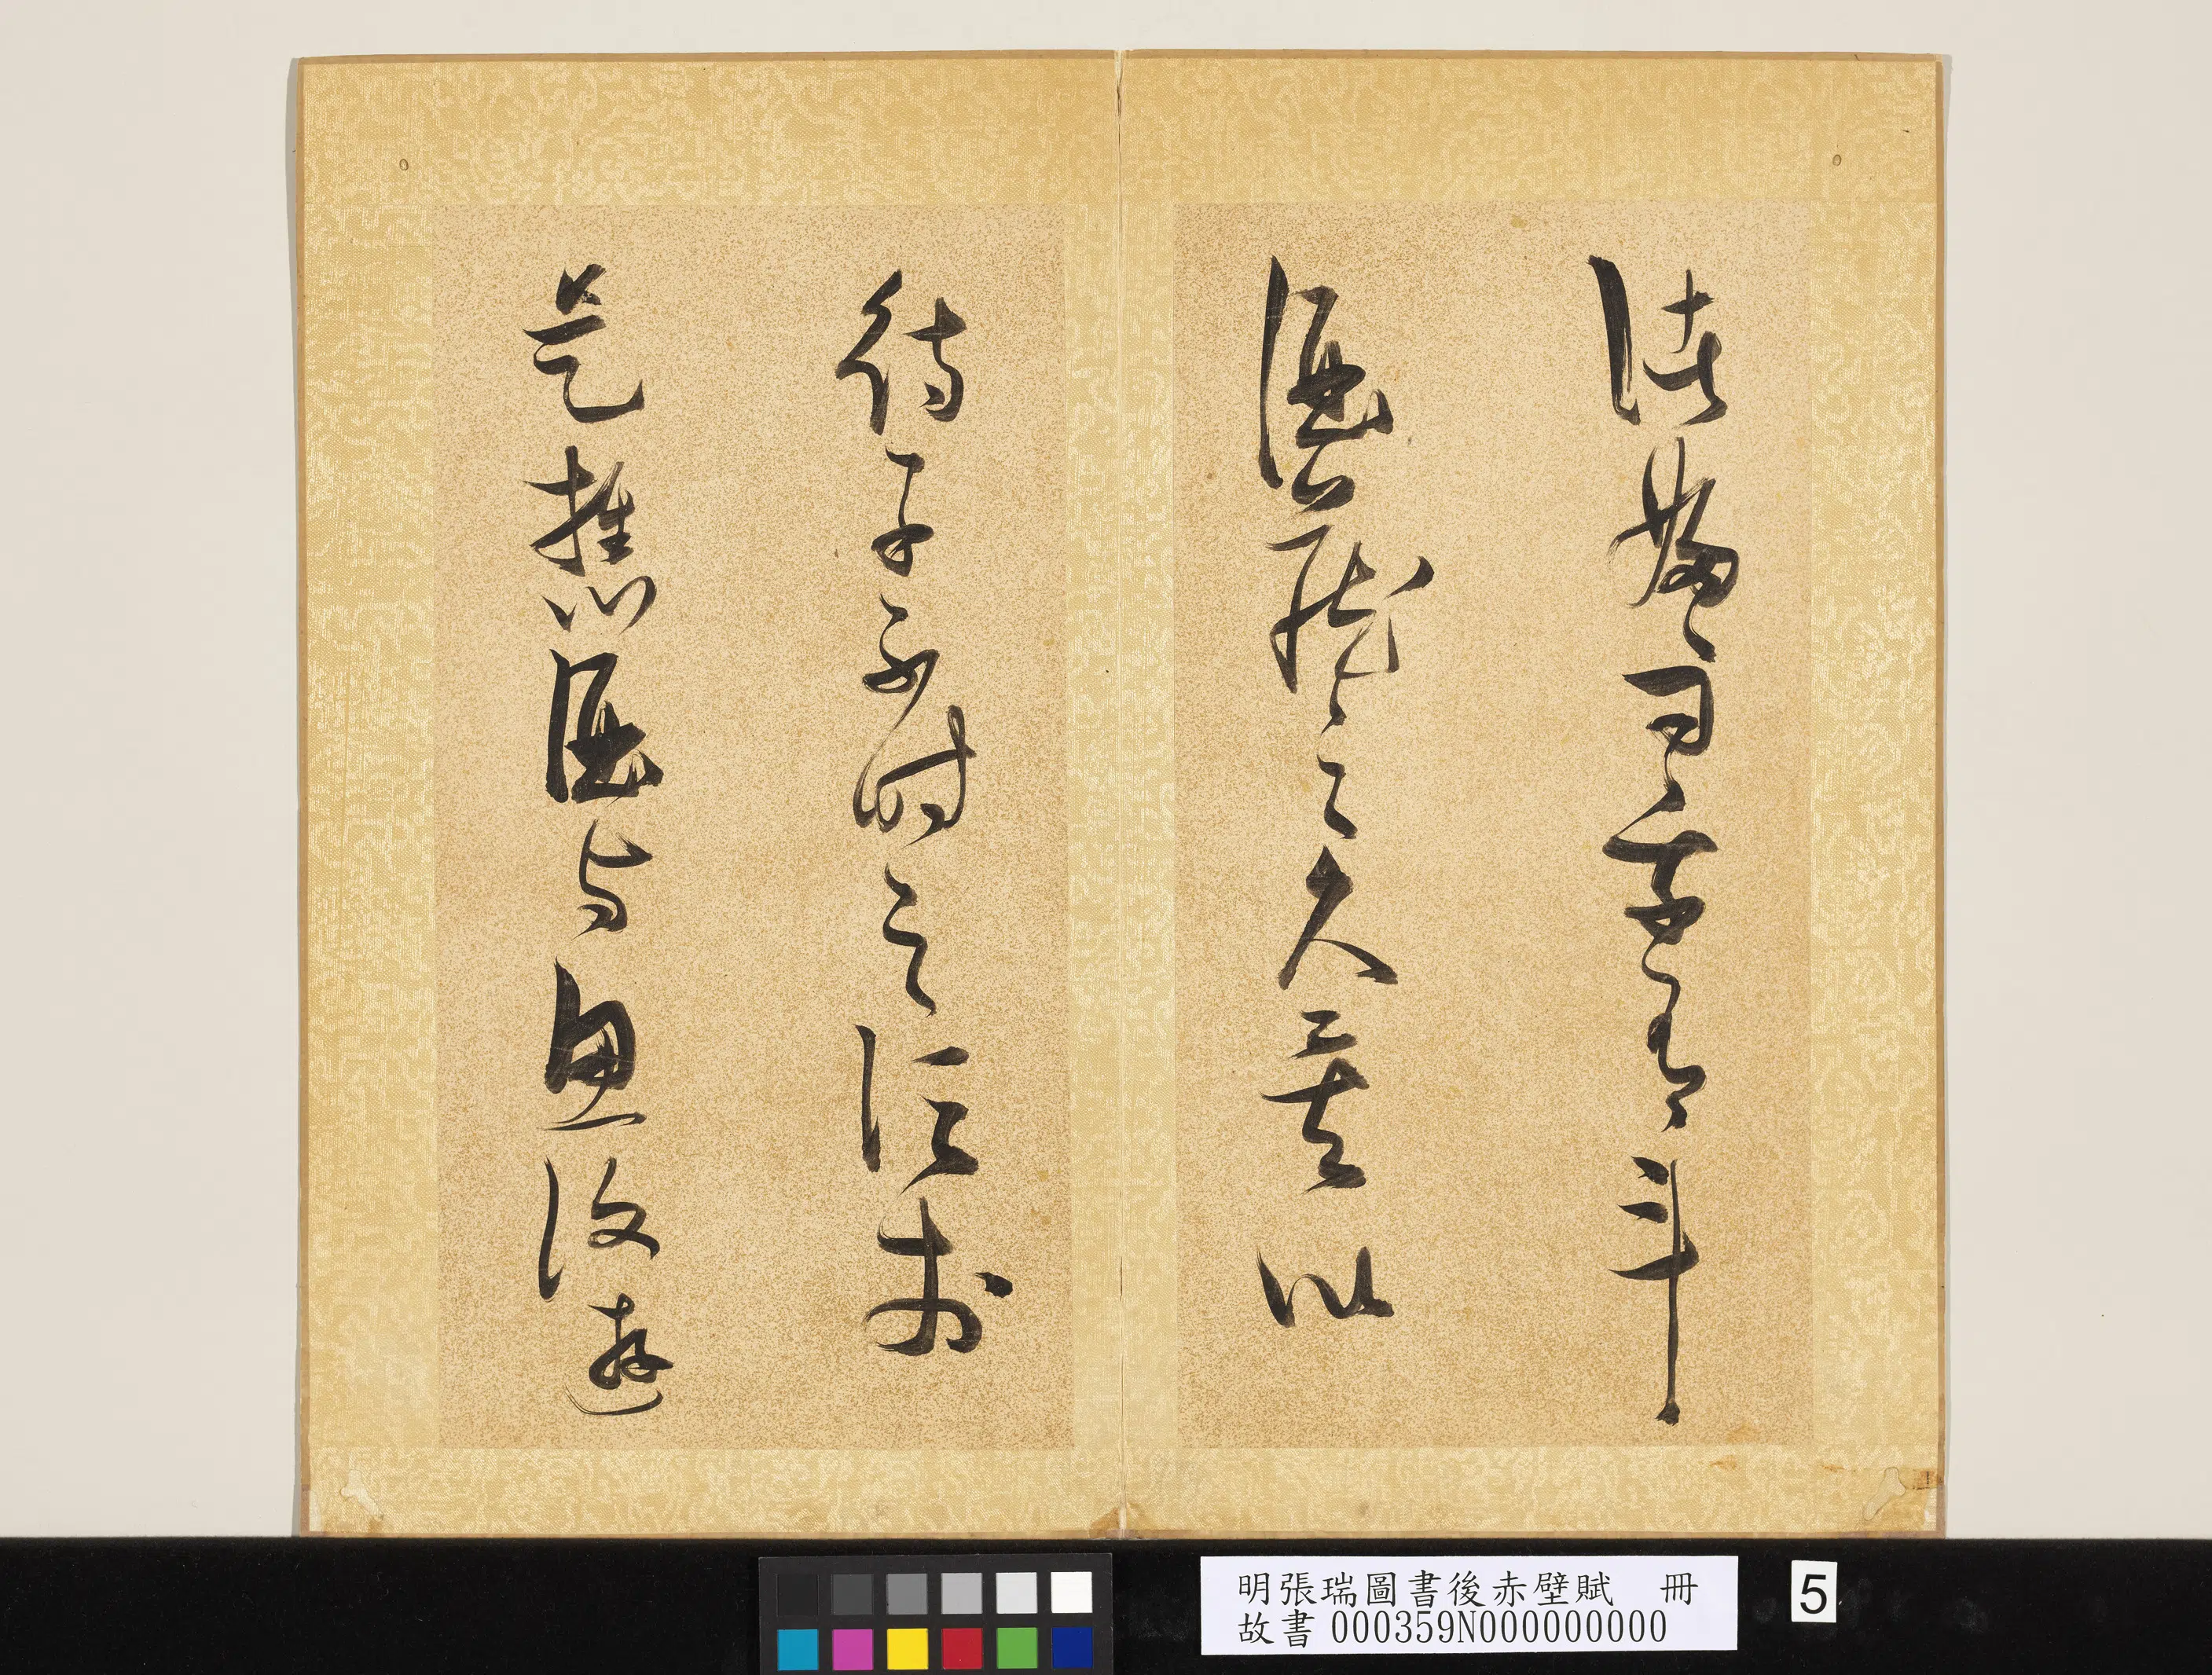 諸婦々曰吾有斗
酒藏之久矣以
待子不時之須於
是攜酒與魚復遊
明張瑞圖書後赤壁賦　冊
故書000359N000000000
5